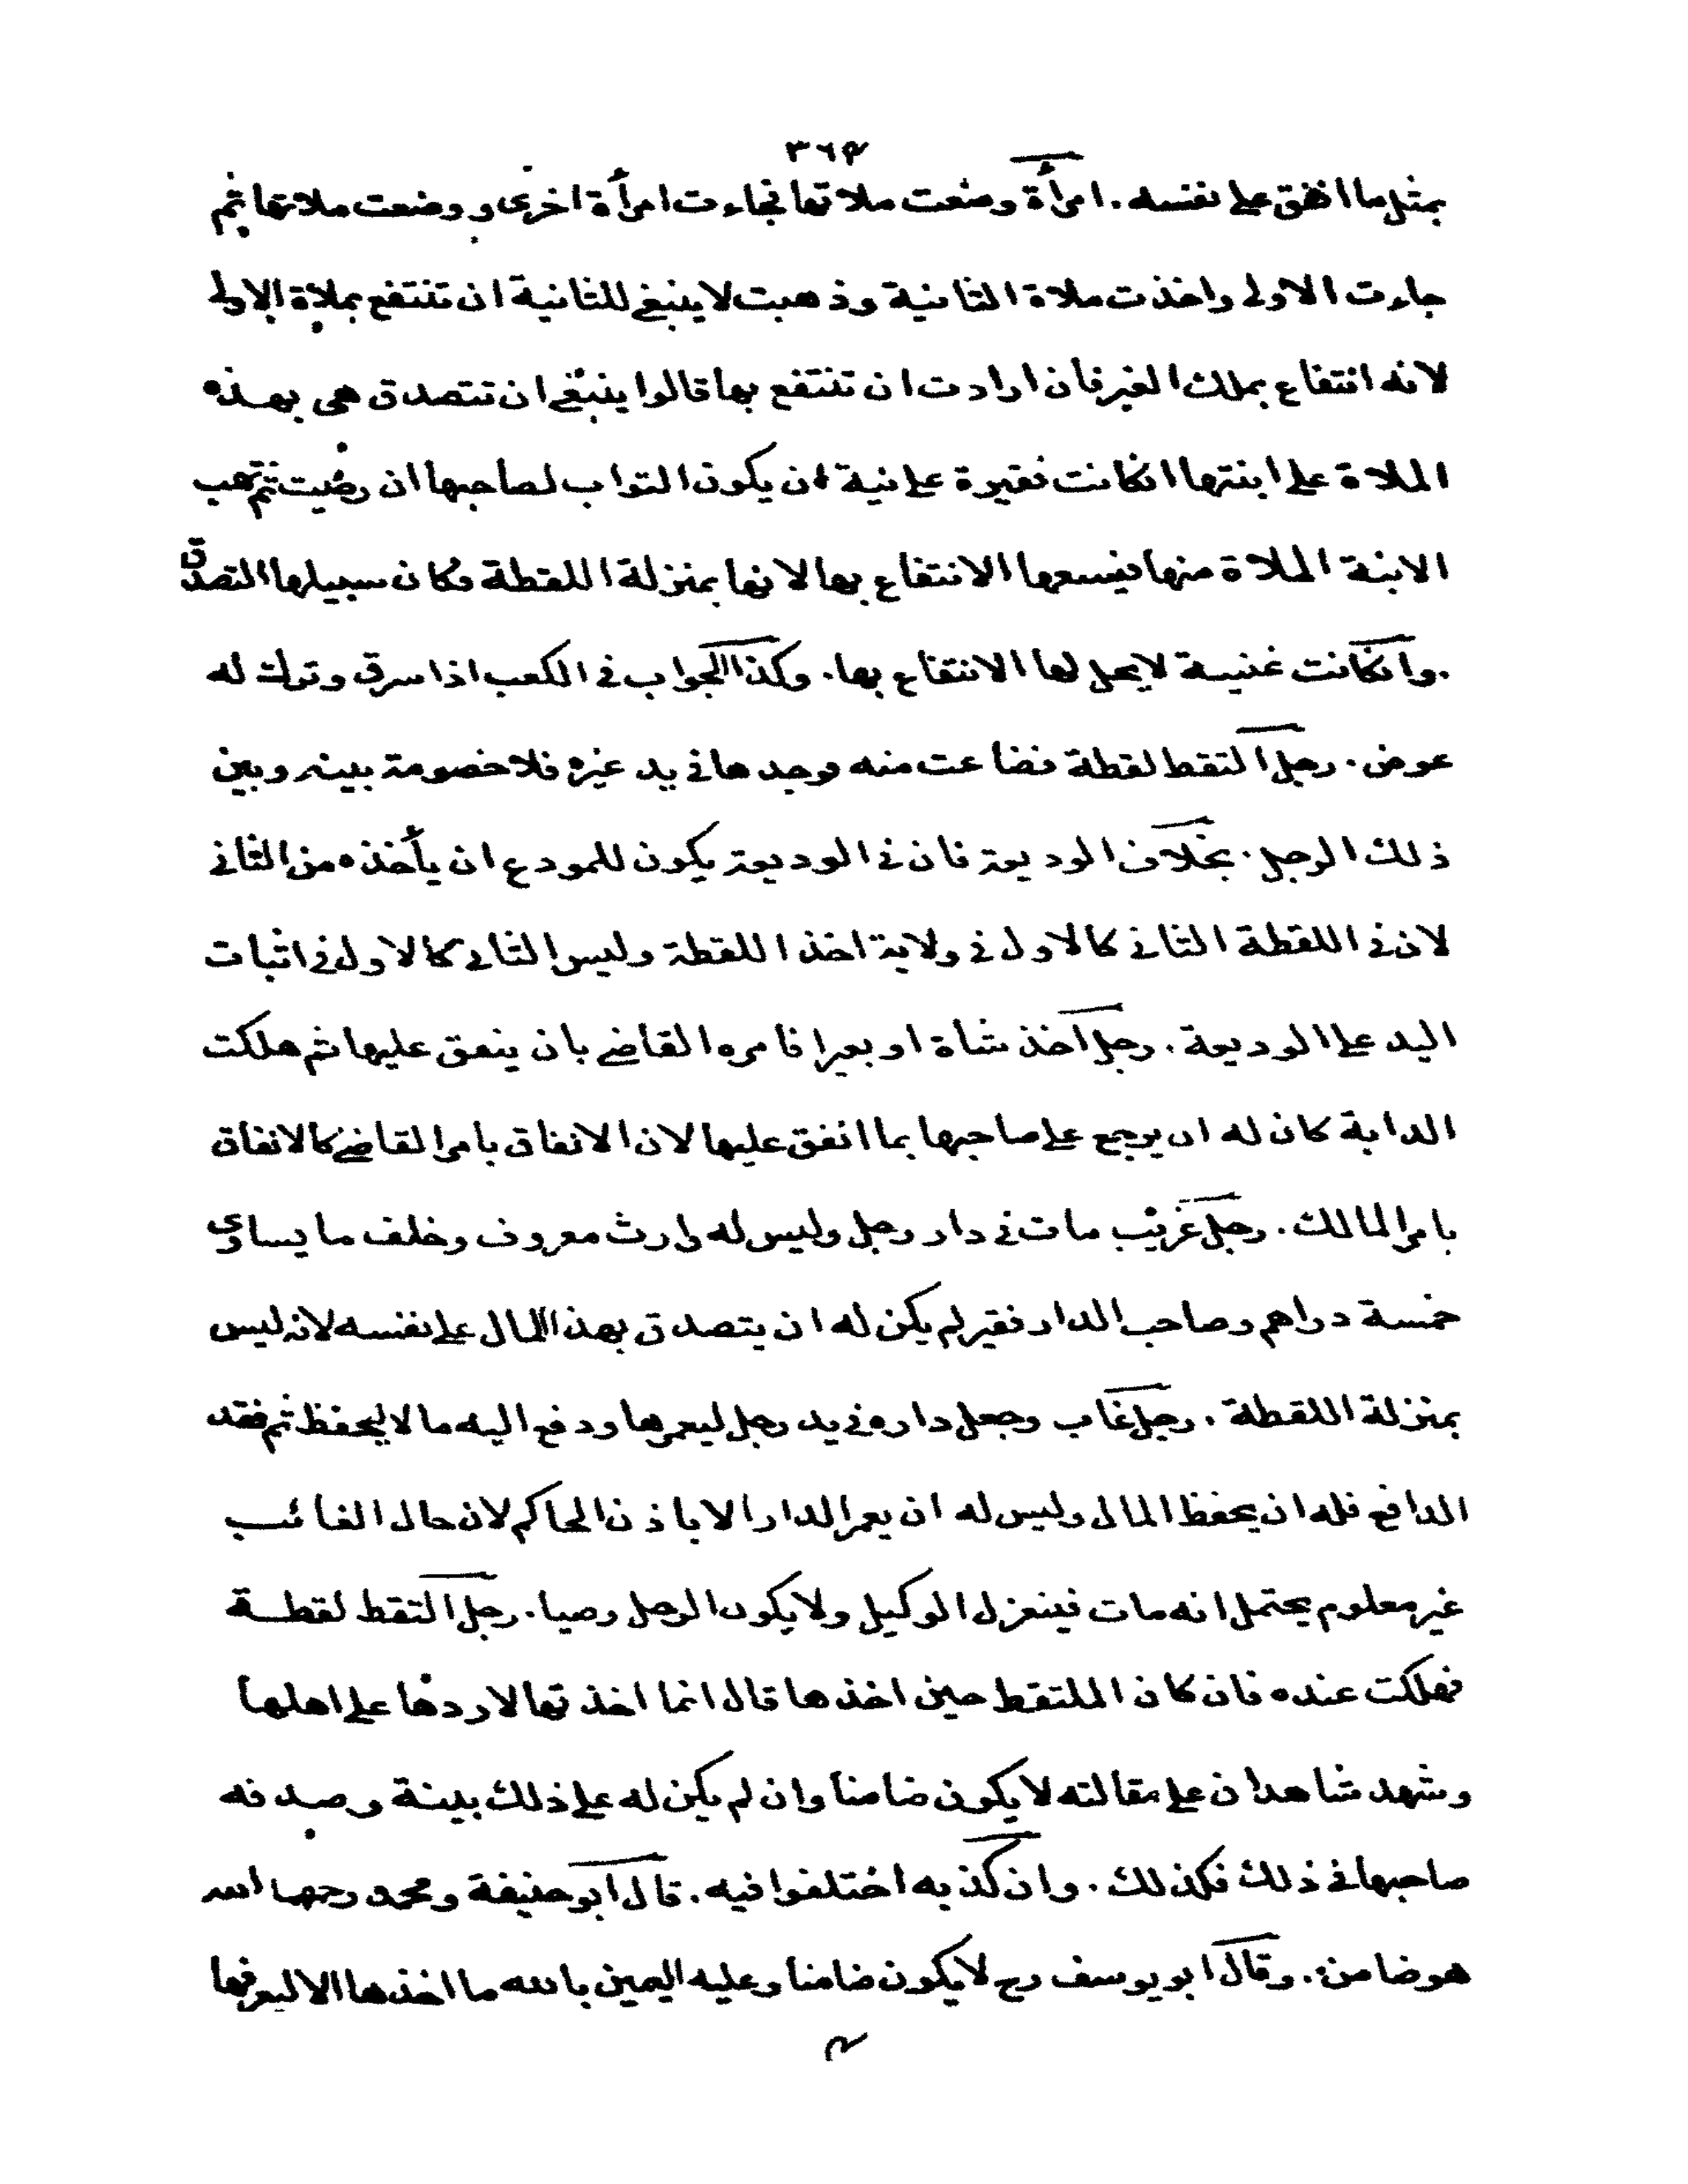 ٣٦٤
بمثل ما انفق على نفسه . امرأة وضعت ملاتها فجاءت امرأة اخرى و وضعت ملاتها ثم
جاءت الاولى واخذت ملاة الثانية وذهبت لا ينبغي للثانية ان تنتفع بملاة الاولى
لانه انتفاع بملك الغير فان ارادت ان تنتفع بها قالوا ينبغي ان تتصدق هي بهذه
الملاة على ابنتها انكانت فقيرة على نية ان يكون الثواب لصاحبها ان رضيت ثم تهب
الابنة الملاة منها فيسعها الانتفاع بها لانها بمنزلة اللقطة فكان سبيلها التصدق
. وانكانت غنية لا يحل لها الانتفاع بها . وكذا الجواب في المكعب اذا سرق وترك له
عوض . رجل التقط لقطة فضاعت منه فوجدها في يد غيره فلا خصومة بينه وبين
ذلك الرجل . بخلاف الوديعة فان في الوديعة يكون للمودع ان يأخذه من الثاني
لان في اللقطة الثاني كالاول في ولاية اخذ اللقطة وليس الثاني كالاول في اثبات
اليد على الوديعة . رجل اخذ شاة او بعيرا فامره القاضي بان ينفق عليها ثم هلكت
الدابة كان له ان يرجع على صاحبها بما انفق عليها لان الانفاق بامر القاضي كالانفاق
بامر المالك . رجل غريب مات في دار رجل وليس له وارث معروف وخلف ما يساوي
خمسة دراهم وصاحب الدار فقير لم يكن له ان يتصدق بهذا المال على نفسه لانه ليس
بمنزلة اللقطة . رجل غاب وجعل داره في يد رجل ليعمرها ودفع اليه مالا ليحفظ ثم فقد
الدافع فله ان يحفظ المال وليس له ان يعمر الدار الا باذن الحاكم لان حال الغائب
غير معلوم يحتمل انه مات فينعزل الوكيل ولا يكون الرجل وصيا . رجل التقط لقطة
فهلكت عنده فان كان الملتقط حين اخذها قال انما اخذتها لاردها على اهلها
وشهد شاهدان على مقالته لا يكون ضامنا وان لم يكن له على ذلك بينة وصدقه
صاحبها في ذلك فكذلك . وان كذبه اختلفوا فيه . قال ابو حنيفة ومحمد رحمهما الله
هو ضامن . وقال ابو يوسف رح لا يكون ضامنا وعليه اليمين بالله ما اخذها الا ليعرفها